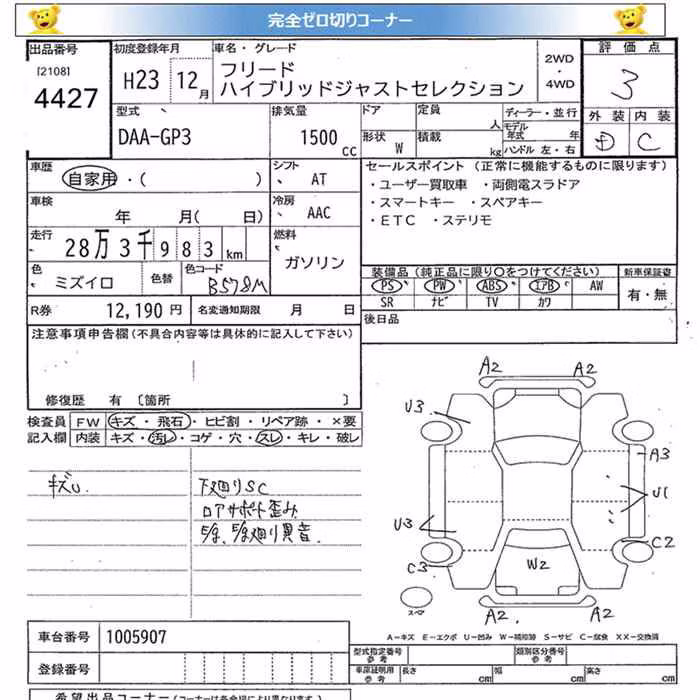 完全ゼロ切りコーナー
出品番号 初度登録年月 車名・グレード 評価点
[2108] 4427 H23 12月 フリード ハイブリッドジャストセレクション 2WD・4WD 3
型式 排気量 ドア 定員 ディーラー・並行 外装 内装
DAA-GP3 1500cc 形状 W 人 積載 kg モデル年式 年 ハンドル 左・右 D C
車歴 シフト セールスポイント (正常に機能するものに限ります)
自家用・( ) AT ・ユーザー買取車 ・両側電スラドア
車検 冷房 ・スマートキー ・スペアキー
年 月( 日) AAC ・ETC ・ステリモ
走行 燃料
28万3千983km ガソリン
色 色替 色コード 装備品(純正品に限り〇をつけてください) 新車保証書
ミズイロ B578M PS PW ABS エアB AW 有・無
SR ナビ TV カワ
R券 12,190円 名変通知期限 月 日 後日品
注意事項申告欄(不具合内容等は具体的に記入して下さい)
修復歴 有 〔箇所 〕
検査員記入欄 FW キズ・飛石・ヒビ割・リペア跡・×要
内装 キズ・汚レ・コゲ・穴・スレ・キレ・破レ
キズU. 下廻りSC
ロアサポート歪み
廻り異音.
A2 A2
U3
A3
U1
U3
C2
C3
W2
スペア
A2 A2
A-キズ E-エクボ U-凹み W-補修跡 S-サビ C-腐食 XX-交換済
車台番号 1005907
型式指定番号 参考 類別区分番号 参考
登録番号 車庫証明用 参考 長さ cm 幅 cm 高さ cm
希望出品コーナー